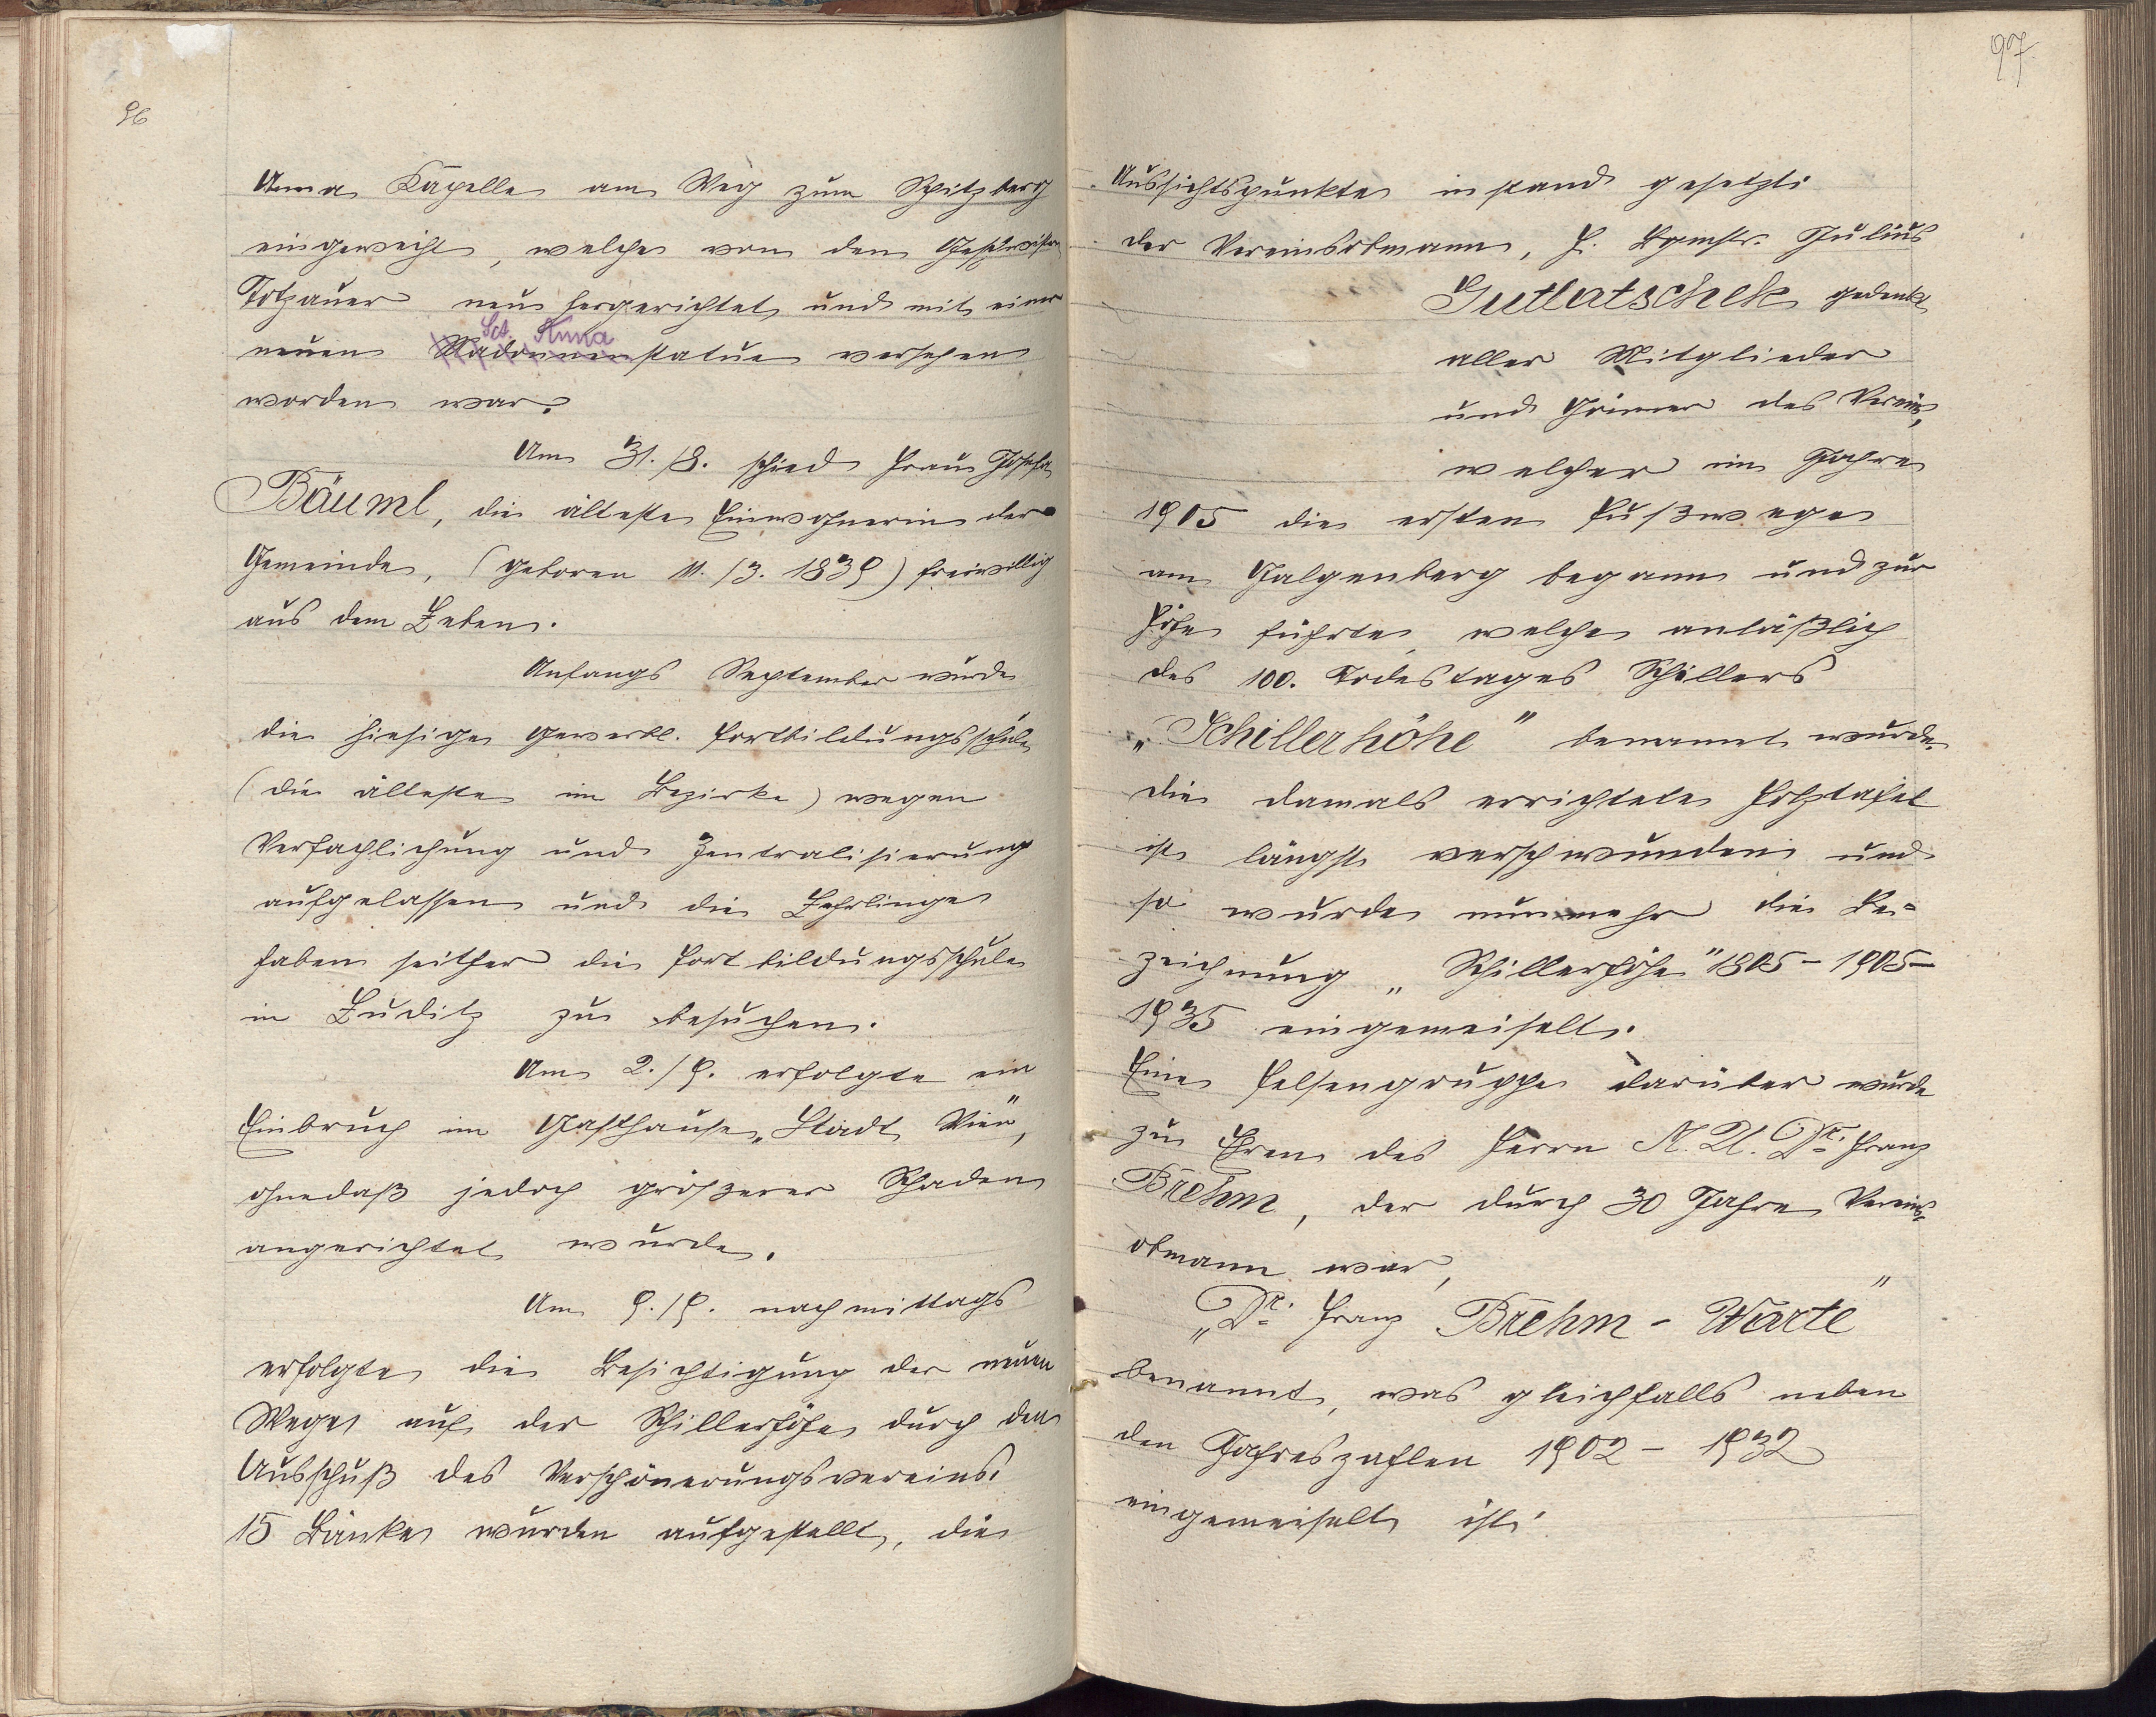 96
Anna Kapelle am Weg zum Spitzberg
eingeweiht, welche von den Geschwistern
Totzauer neu hergerichtet und mit einer
Sct. Anna
neuen Madonnenstatue versehen
worden war.
Am 31./8. schied Frau Josefa
Bäuml, die älteste Einwohnerin der
Gemeinde, (geboren 11./3. 1839) freiwillig
aus dem Leben.
Anfangs September wurde
die hiesige gewerbl. Fortbildungsschule
(die älteste im Bezirke) wegen
Verfachlichung und Zentralisierung
aufgelassen und die Lehrlinge
haben seither die Fortbildungsschule
in Luditz zu besuchen.
Am 2./9. erfolgte ein
Einbruch im Gasthause „Stadt Wien",
ohnedaß jedoch größerer Schaden
angerichtet wurde.
Am 9./9. nachmittags
erfolgte die Besichtigung der neuen
Wege auf der Schillerhöhe durch den
Ausschuß des Verschönerungsvereins.
15 Bänke wurden aufgestellt, die
97
Aussichtspunkte instand gesetzt.
Der Vereinsobmann, H. Bgmstr. Julius
Gutlatschek gedenkt
aller Mitglieder
und Gönner des Vereins,
welcher im Jahre
1905 die ersten Fußwege
am Galgenberg begann und zur
Höhe führte, welche anläßlich
des 100. Todestages Schillers
„Schillerhöhe" benannt wurde.
Die damals errichtete Holztafel
ist längst verschwunden und
so wurde nunmehr die Be=
zeichnung „Schillerhöhe" 1805 - 1905 -
1935 eingemeiselt.
Eine Felsengruppe darüber wurde
zu Ehren des Herrn M. U. Dr. Franz
Brehm, der durch 30 Jahre Vereins=
obmann war,
„Dr. Franz Brehm - Warte"
benannt, was gleichfalls neben
den Jahreszahlen 1902 - 1932
eingemeiselt ist.